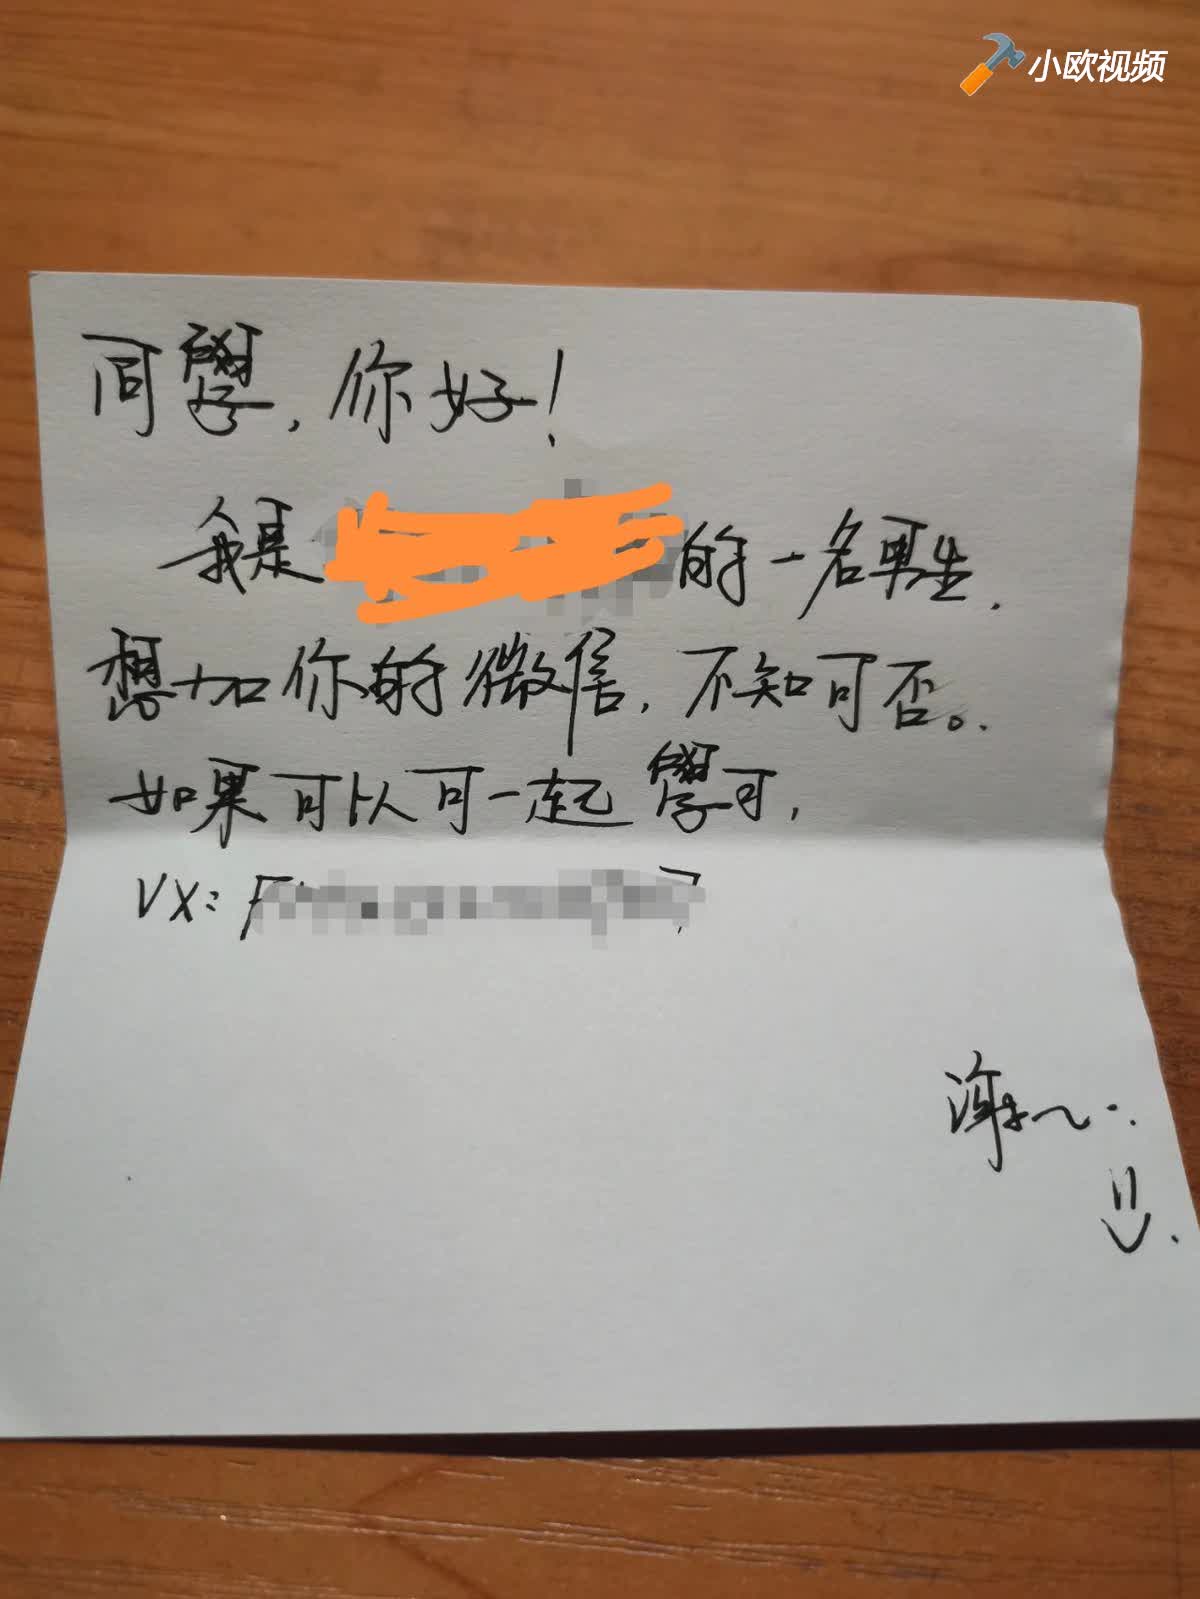 小欧视频
同學,你好!
我是 的一名男生.
想加你的微信,不知可否。
如果可以可一起學习,
VX:
谢谢